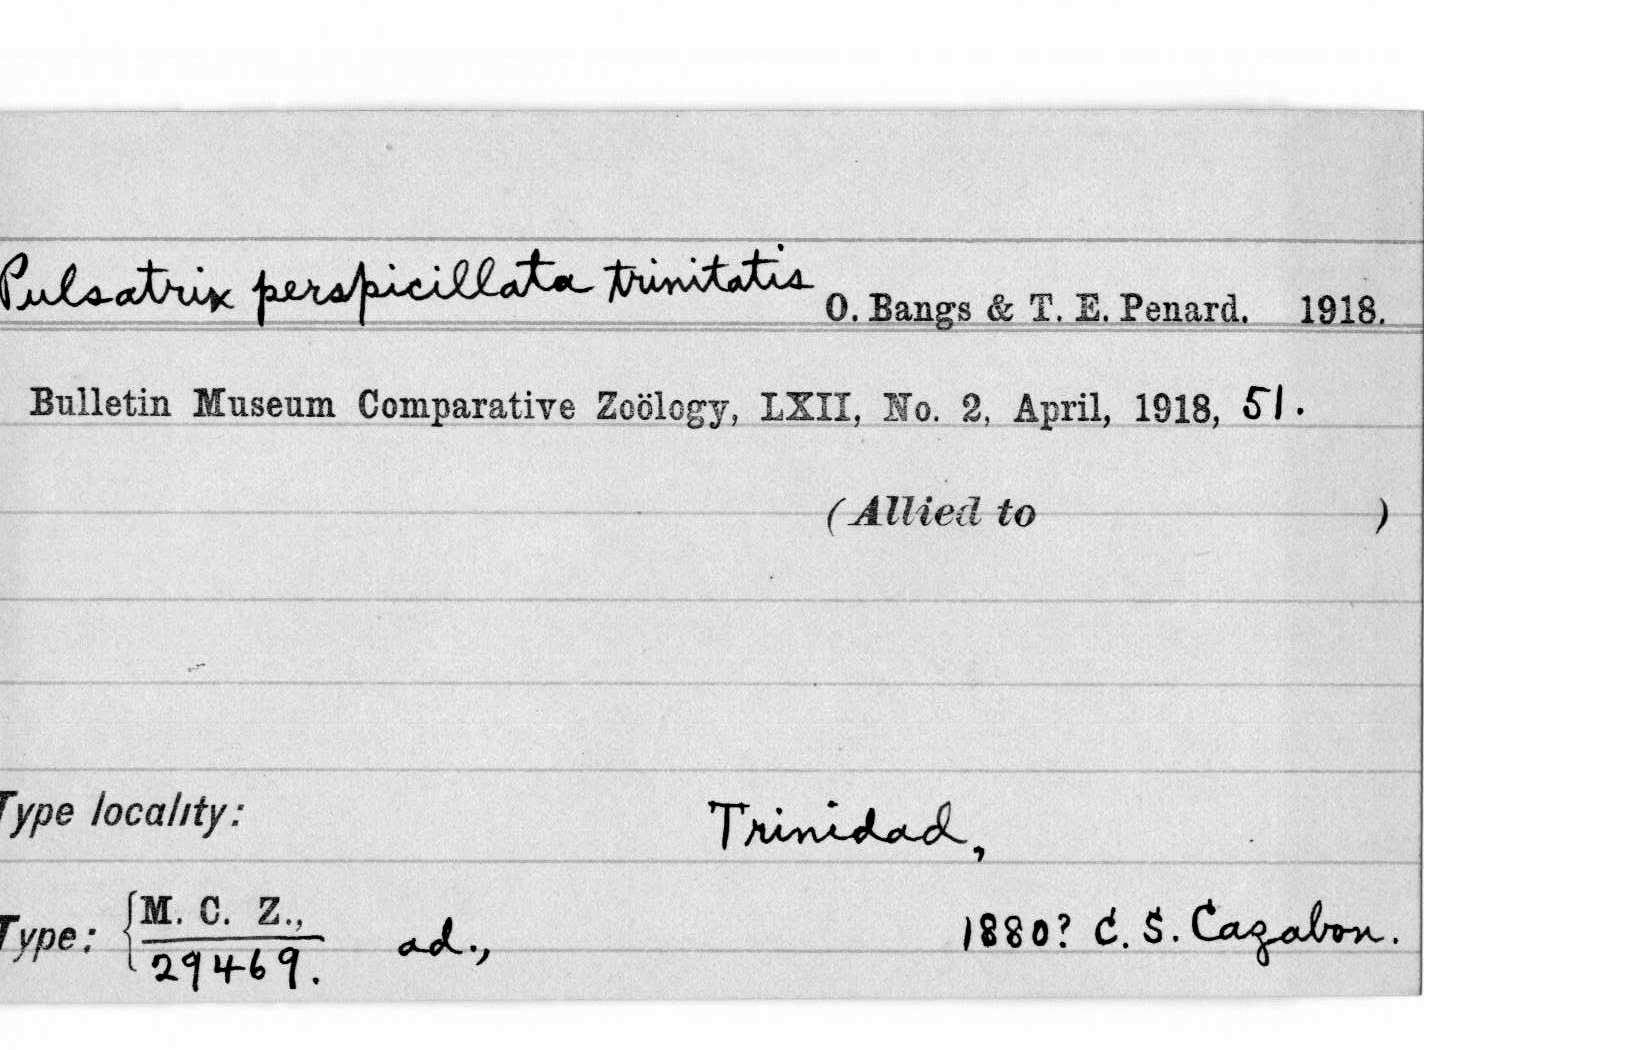 Pulsatrix perspicillata trinitatis O. Bangs & T. E. Penard. 1918.
Bulletin Museum Comparative Zoölogy, LXII, No. 2, April, 1918, 51.
(Allied to )
Type locality: Trinidad,
Type: { M. C. Z., ad., 1880? C. S. Cazabon.
29469.